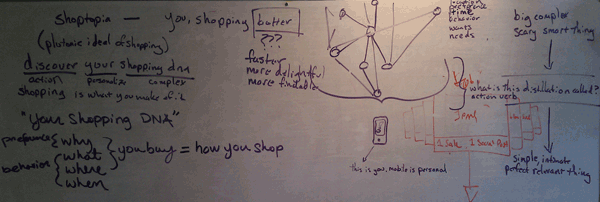 Shoptopia — you, shopping butter
(plutonic ideal of shopping)
???
faster
more delightful
more findable
discover your shopping dna
action personalize complex
shopping is what you make of it
"Your Shopping DNA"
preference { why
what
behavior { where
when
} you buy = how you shop
preference
time
behavior
wants
needs
this is you, mobile is personal
what is this distillation called?
action verb
1 Sale
big complex
scary smart thing
simple, intimate
perfect relevant thing